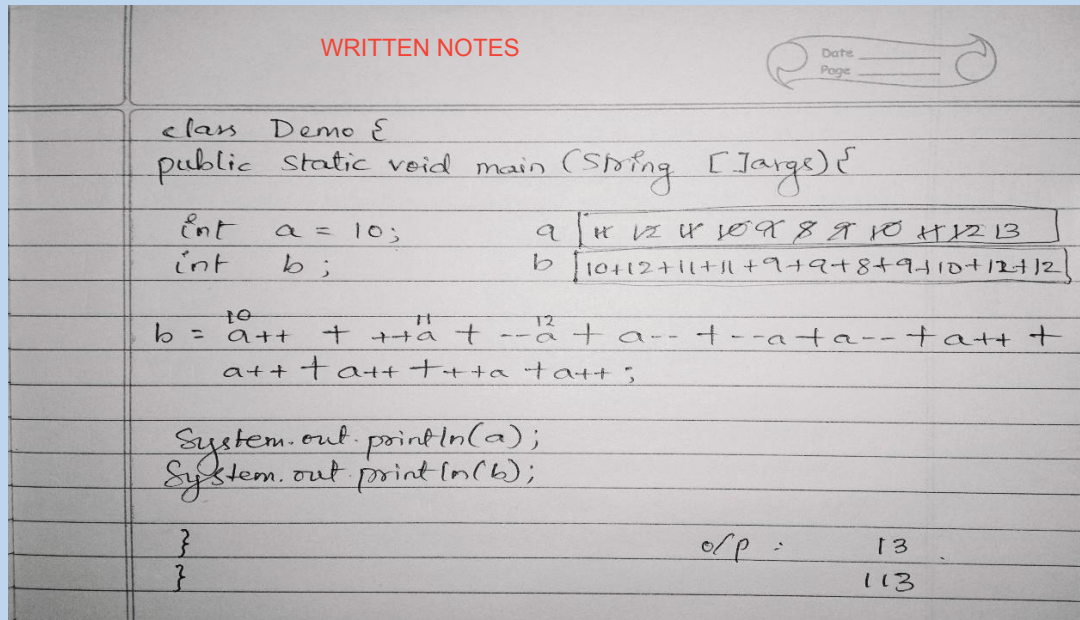 WRITTEN NOTES
Date
Page
class Demo {
public static void main (String []args){
int a = 10; a 11 12 11 10 9 8 9 10 11 12 13
int b; b 10+12+11+11+9+9+8+9+10+12+12
10 11 12
b = a++ + ++a + --a + a-- + --a + a-- + a++ +
a++ + a++ + ++a + a++;
System.out.println(a);
System.out.println(b);
} o/p : 13
} 113